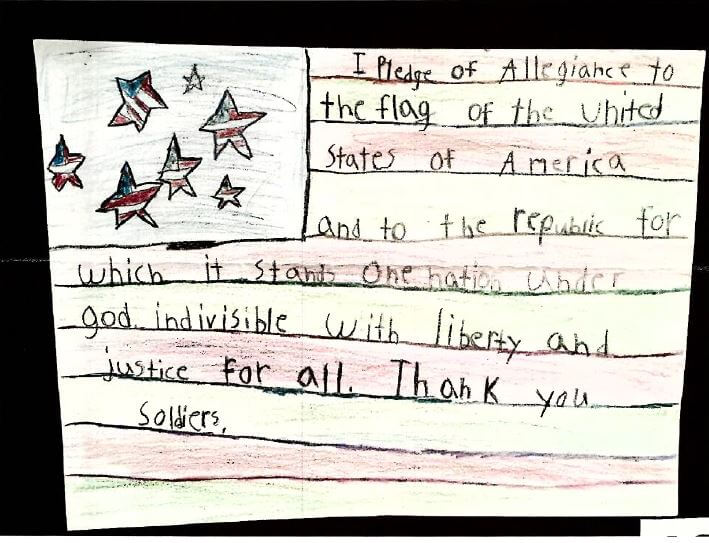 I Pledge of Allegiance to
the flag of the United
States of America
and to the republic for
which it stands One nation Under
god indivisible with liberty and
justice for all. Thank you
Soldiers.